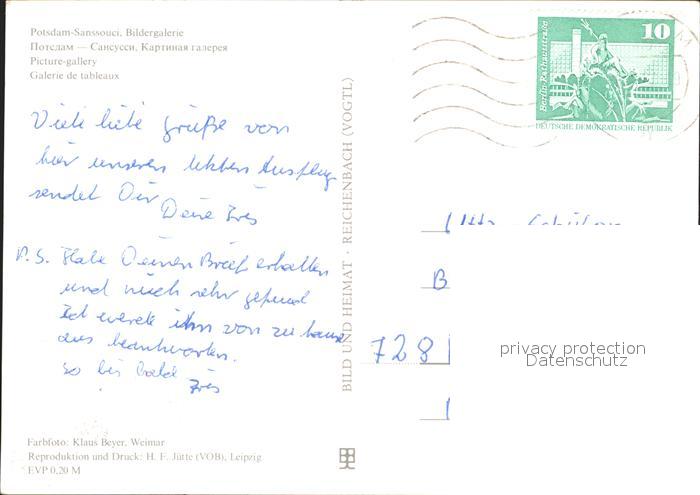 Potsdam-Sanssouci, Bildergalerie
Потсдам — Сансусси, Картиная галерея
Picture-gallery
Galerie de tableaux
Viele liebe Grüße von
hier unseren letzten Ausflug
sendet Dir
Deine
P.S. Habe Deinen Brief erhalten
und mich sehr gefreut
Ich werde ihn von zu hause
aus beantworten.
so bis bald
Farbfoto: Klaus Beyer, Weimar
Reproduktion und Druck: H. F. Jütte (VOB), Leipzig
EVP 0,20 M
BILD UND HEIMAT · REICHENBACH (VOGTL)
10
Berlin-Rathausstraße
DEUTSCHE DEMOKRATISCHE REPUBLIK
B
728
privacy protection
Datenschutz